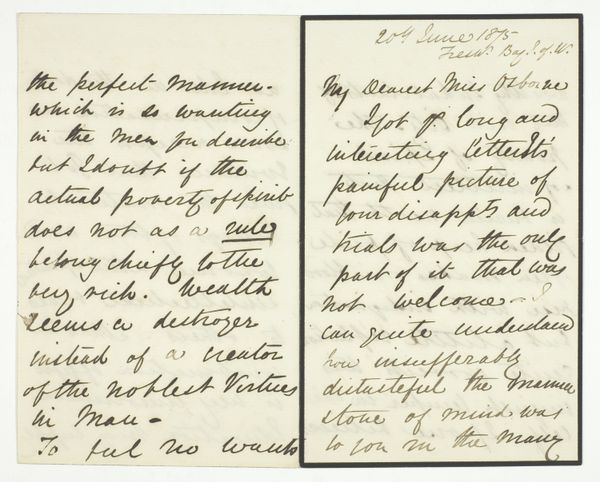 20th June 1875
Freshr. Bay. I. of W.
My Dearest Miss Osborne
I got yr. long and
interesting letter. Its
painful picture of
your disappts and
trials was the only
part of it that was
not welcome – I
can quite understand
how insufferably
distasteful the manner
& tone of mind was
to you in the many
the perfect manner –
which is so wanting
in the men you describe
but I doubt if the
actual poverty of spirit
does not as a rule
belong chiefly to the
very rich. Wealth
seems a destroyer
instead of a creator
of the noblest Virtues
in Man –
To feel no wants